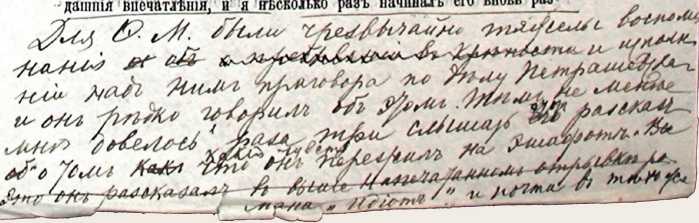 дашнія впечатлѣнія, и я нѣсколько разъ начиналъ его вновь раз-
Для Ѳ. М. были чрезвычайно тяжелы воспоми
нанія о пребываніи въ крѣпости и исполне
ніе надъ нимъ приговора по дѣлу Петрашевцевъ
и онъ рѣдко говорилъ объ этомъ. Тѣмъ не менѣе
мнѣ довелось раза три слышать его разсказъ
объ этомъ какія чувства что онъ пережилъ на эшафотѣ. Все
это онъ разсказалъ въ выше напечатанномъ отрывкѣ ро
мана „Идіотъ" и почти въ тѣхъ же